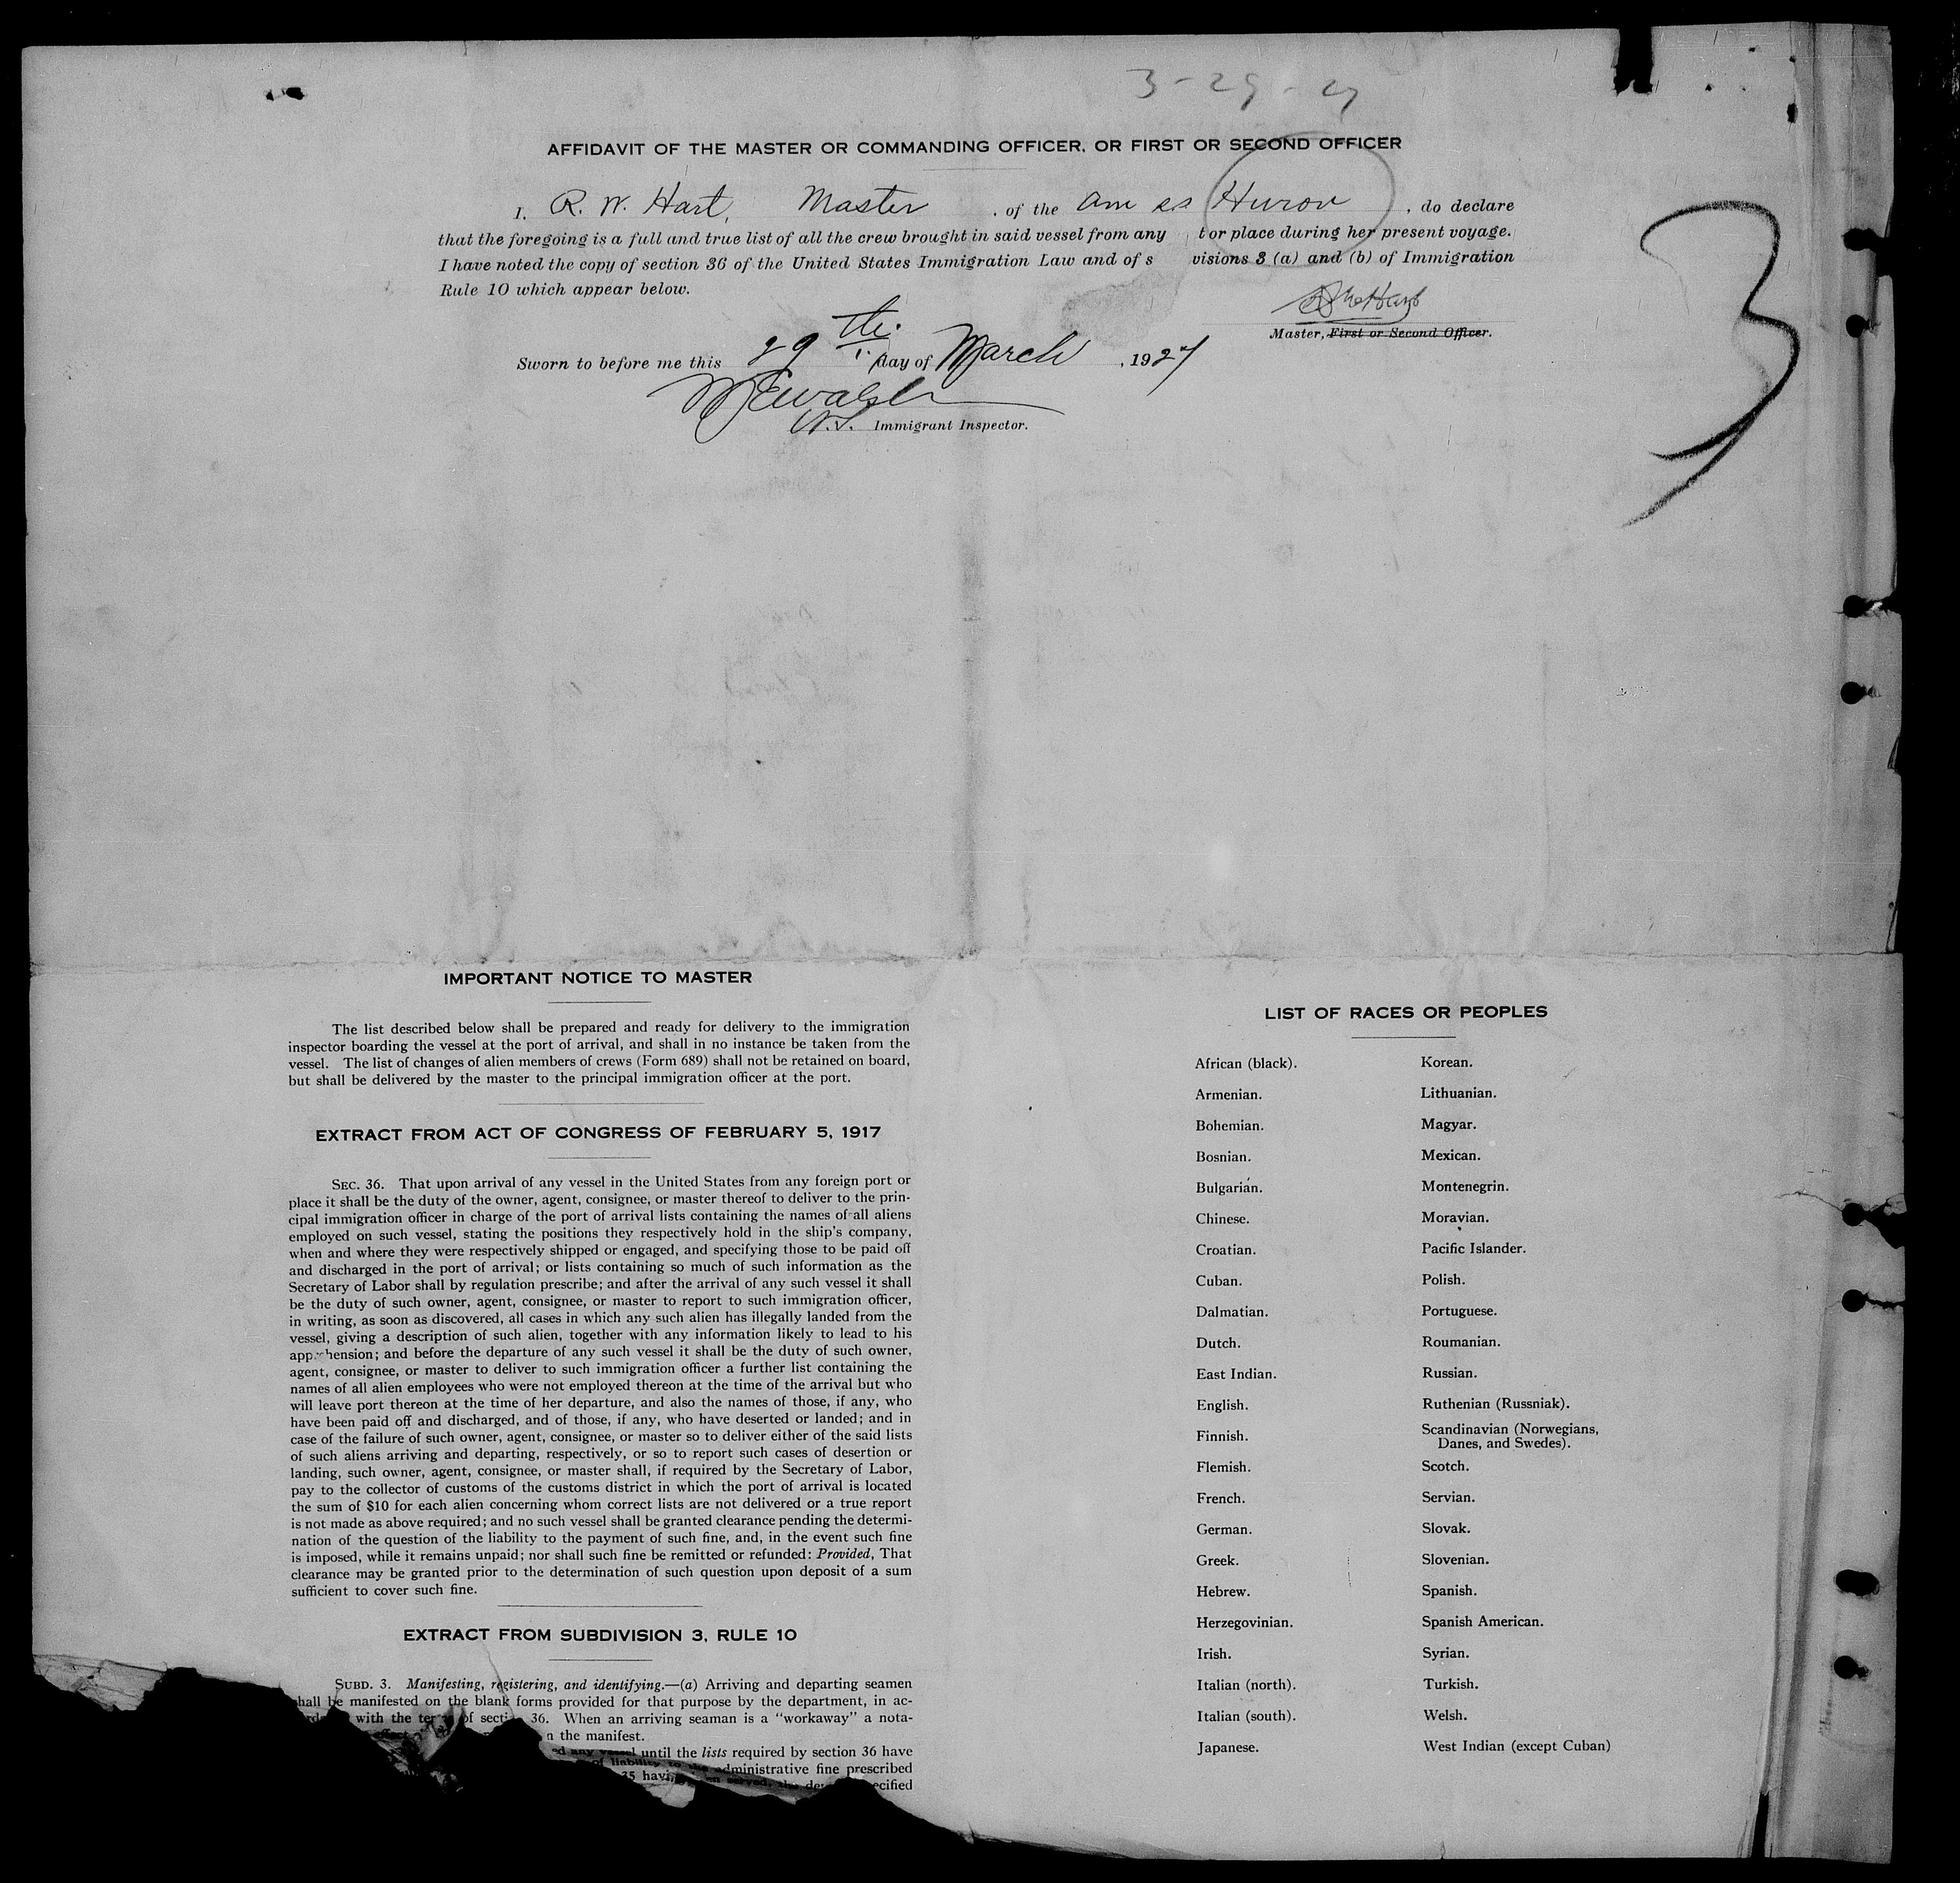 3-29-27
AFFIDAVIT OF THE MASTER OR COMMANDING OFFICER, OR FIRST OR SECOND OFFICER
I, R. W. Hart, Master, of the Am ss Huron, do declare
that the foregoing is a full and true list of all the crew brought in said vessel from any t or place during her present voyage.
I have noted the copy of section 36 of the United States Immigration Law and of s visions 3 (a) and (b) of Immigration
Rule 10 which appear below.
Master, First or Second Officer.
Sworn to before me this 29th day of March, 1927
Immigrant Inspector.
3
IMPORTANT NOTICE TO MASTER
The list described below shall be prepared and ready for delivery to the immigration
inspector boarding the vessel at the port of arrival, and shall in no instance be taken from the
vessel. The list of changes of alien members of crews (Form 689) shall not be retained on board,
but shall be delivered by the master to the principal immigration officer at the port.
EXTRACT FROM ACT OF CONGRESS OF FEBRUARY 5, 1917
SEC. 36. That upon arrival of any vessel in the United States from any foreign port or
place it shall be the duty of the owner, agent, consignee, or master thereof to deliver to the prin-
cipal immigration officer in charge of the port of arrival lists containing the names of all aliens
employed on such vessel, stating the positions they respectively hold in the ship's company,
when and where they were respectively shipped or engaged, and specifying those to be paid off
and discharged in the port of arrival; or lists containing so much of such information as the
Secretary of Labor shall by regulation prescribe; and after the arrival of any such vessel it shall
be the duty of such owner, agent, consignee, or master to report to such immigration officer,
in writing, as soon as discovered, all cases in which any such alien has illegally landed from the
vessel, giving a description of such alien, together with any information likely to lead to his
apprehension; and before the departure of any such vessel it shall be the duty of such owner,
agent, consignee, or master to deliver to such immigration officer a further list containing the
names of all alien employees who were not employed thereon at the time of the arrival but who
will leave port thereon at the time of her departure, and also the names of those, if any, who
have been paid off and discharged, and of those, if any, who have deserted or landed; and in
case of the failure of such owner, agent, consignee, or master so to deliver either of the said lists
of such aliens arriving and departing, respectively, or so to report such cases of desertion or
landing, such owner, agent, consignee, or master shall, if required by the Secretary of Labor,
pay to the collector of customs of the customs district in which the port of arrival is located
the sum of $10 for each alien concerning whom correct lists are not delivered or a true report
is not made as above required; and no such vessel shall be granted clearance pending the determi-
nation of the question of the liability to the payment of such fine, and, in the event such fine
is imposed, while it remains unpaid; nor shall such fine be remitted or refunded: Provided, That
clearance may be granted prior to the determination of such question upon deposit of a sum
sufficient to cover such fine.
EXTRACT FROM SUBDIVISION 3, RULE 10
SUBD. 3. Manifesting, registering, and identifying.—(a) Arriving and departing seamen
shall be manifested on the blank forms provided for that purpose by the department, in ac-
with the terms of section 36. When an arriving seaman is a "workaway" a nota-
effect n the manifest.
ed any vessel until the lists required by section 36 have
of liability to the administrative fine prescribed
35 having been served, the
LIST OF RACES OR PEOPLES
African (black).
Armenian.
Bohemian.
Bosnian.
Bulgarian.
Chinese.
Croatian.
Cuban.
Dalmatian.
Dutch.
East Indian.
English.
Finnish.
Flemish.
French.
German.
Greek.
Hebrew.
Herzegovinian.
Irish.
Italian (north).
Italian (south).
Japanese.
Korean.
Lithuanian.
Magyar.
Mexican.
Montenegrin.
Moravian.
Pacific Islander.
Polish.
Portuguese.
Roumanian.
Russian.
Ruthenian (Russniak).
Scandinavian (Norwegians,
Danes, and Swedes).
Scotch.
Servian.
Slovak.
Slovenian.
Spanish.
Spanish American.
Syrian.
Turkish.
Welsh.
West Indian (except Cuban)